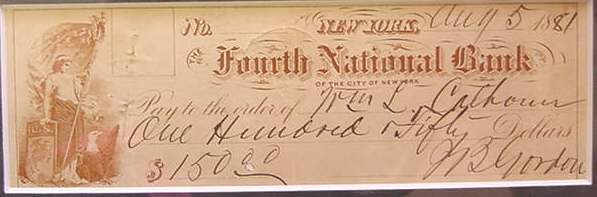 No. NEW YORK, Aug 5 1881
THE Fourth National Bank
OF THE CITY OF NEW YORK
Pay to the order of Wm L. Calhoun
One Hundred & Fifty Dollars
$150.00 J B Gordon